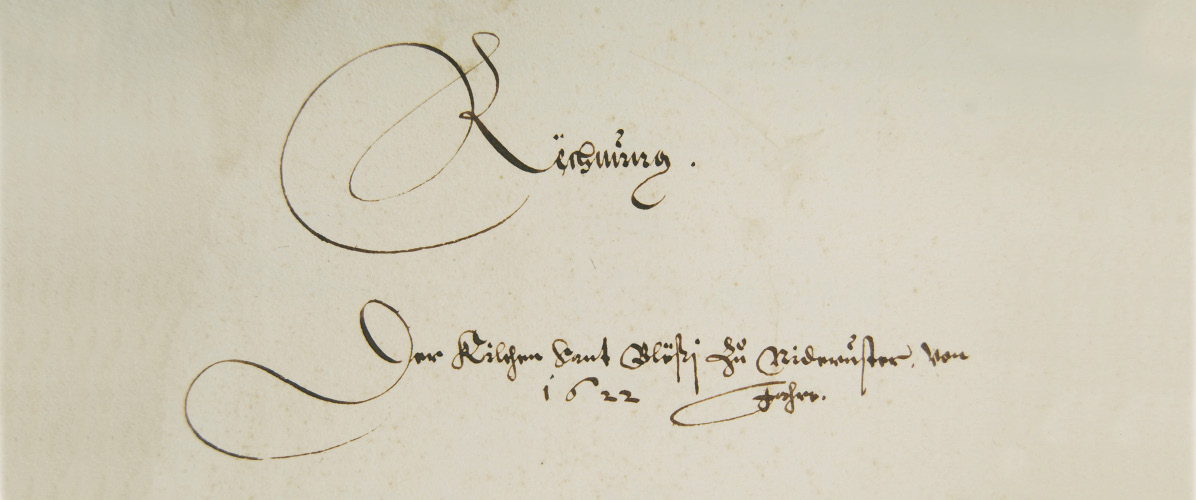 Rëchnu̇ng.
Der Kilchen Sant Blësÿ zů Niderůster, von
1622 Jahre.